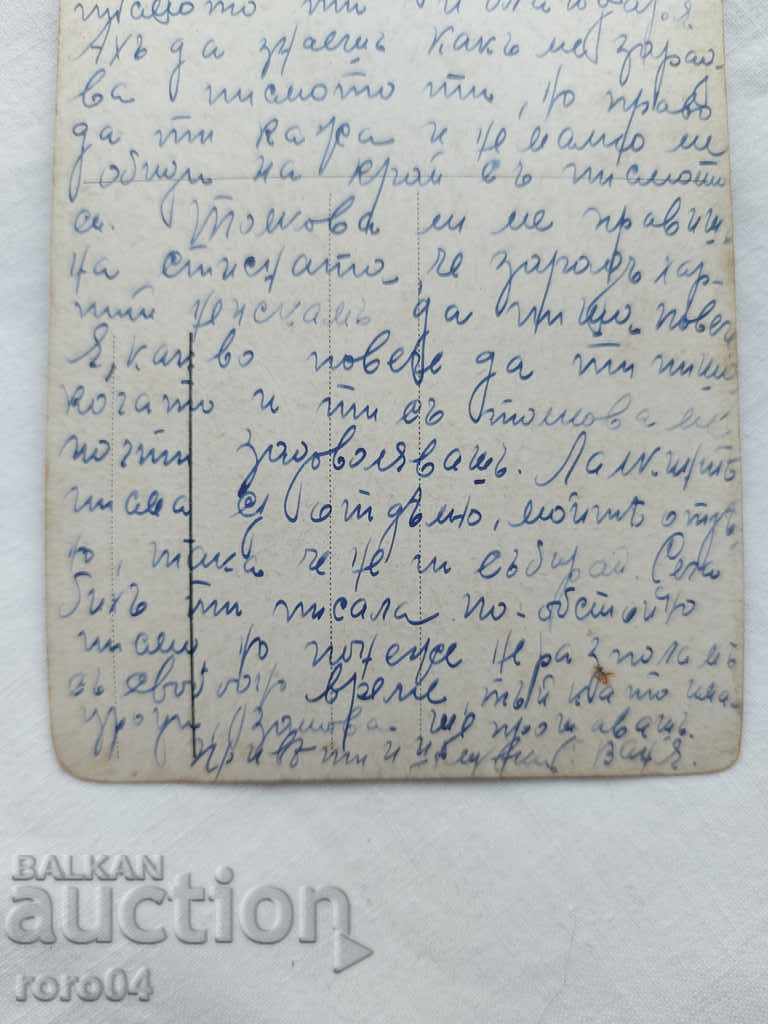 писмото ти
Ахъ да знаешъ какъ ме зарад-
ва писмото ти, но право
да ти кажа и немалко ме
обиди на край съ писмото
си. Толкова ли ме правишъ
на стисната, че зарадъ хар-
тия неискамъ да пиша повече
Я, какво повече да ти пиша
когато и ти съ толкова ме
почти задоволявашъ.
писма отделно, моите отде-
но, така че не ги събирай. Сега
бихъ ти писала по-обстойно
писмо, но понеже не разполамъ
съ свободно време, тъй като има
уроци, затова ще прощавашъ.
Приветъ и
BALKAN
auction
roro04